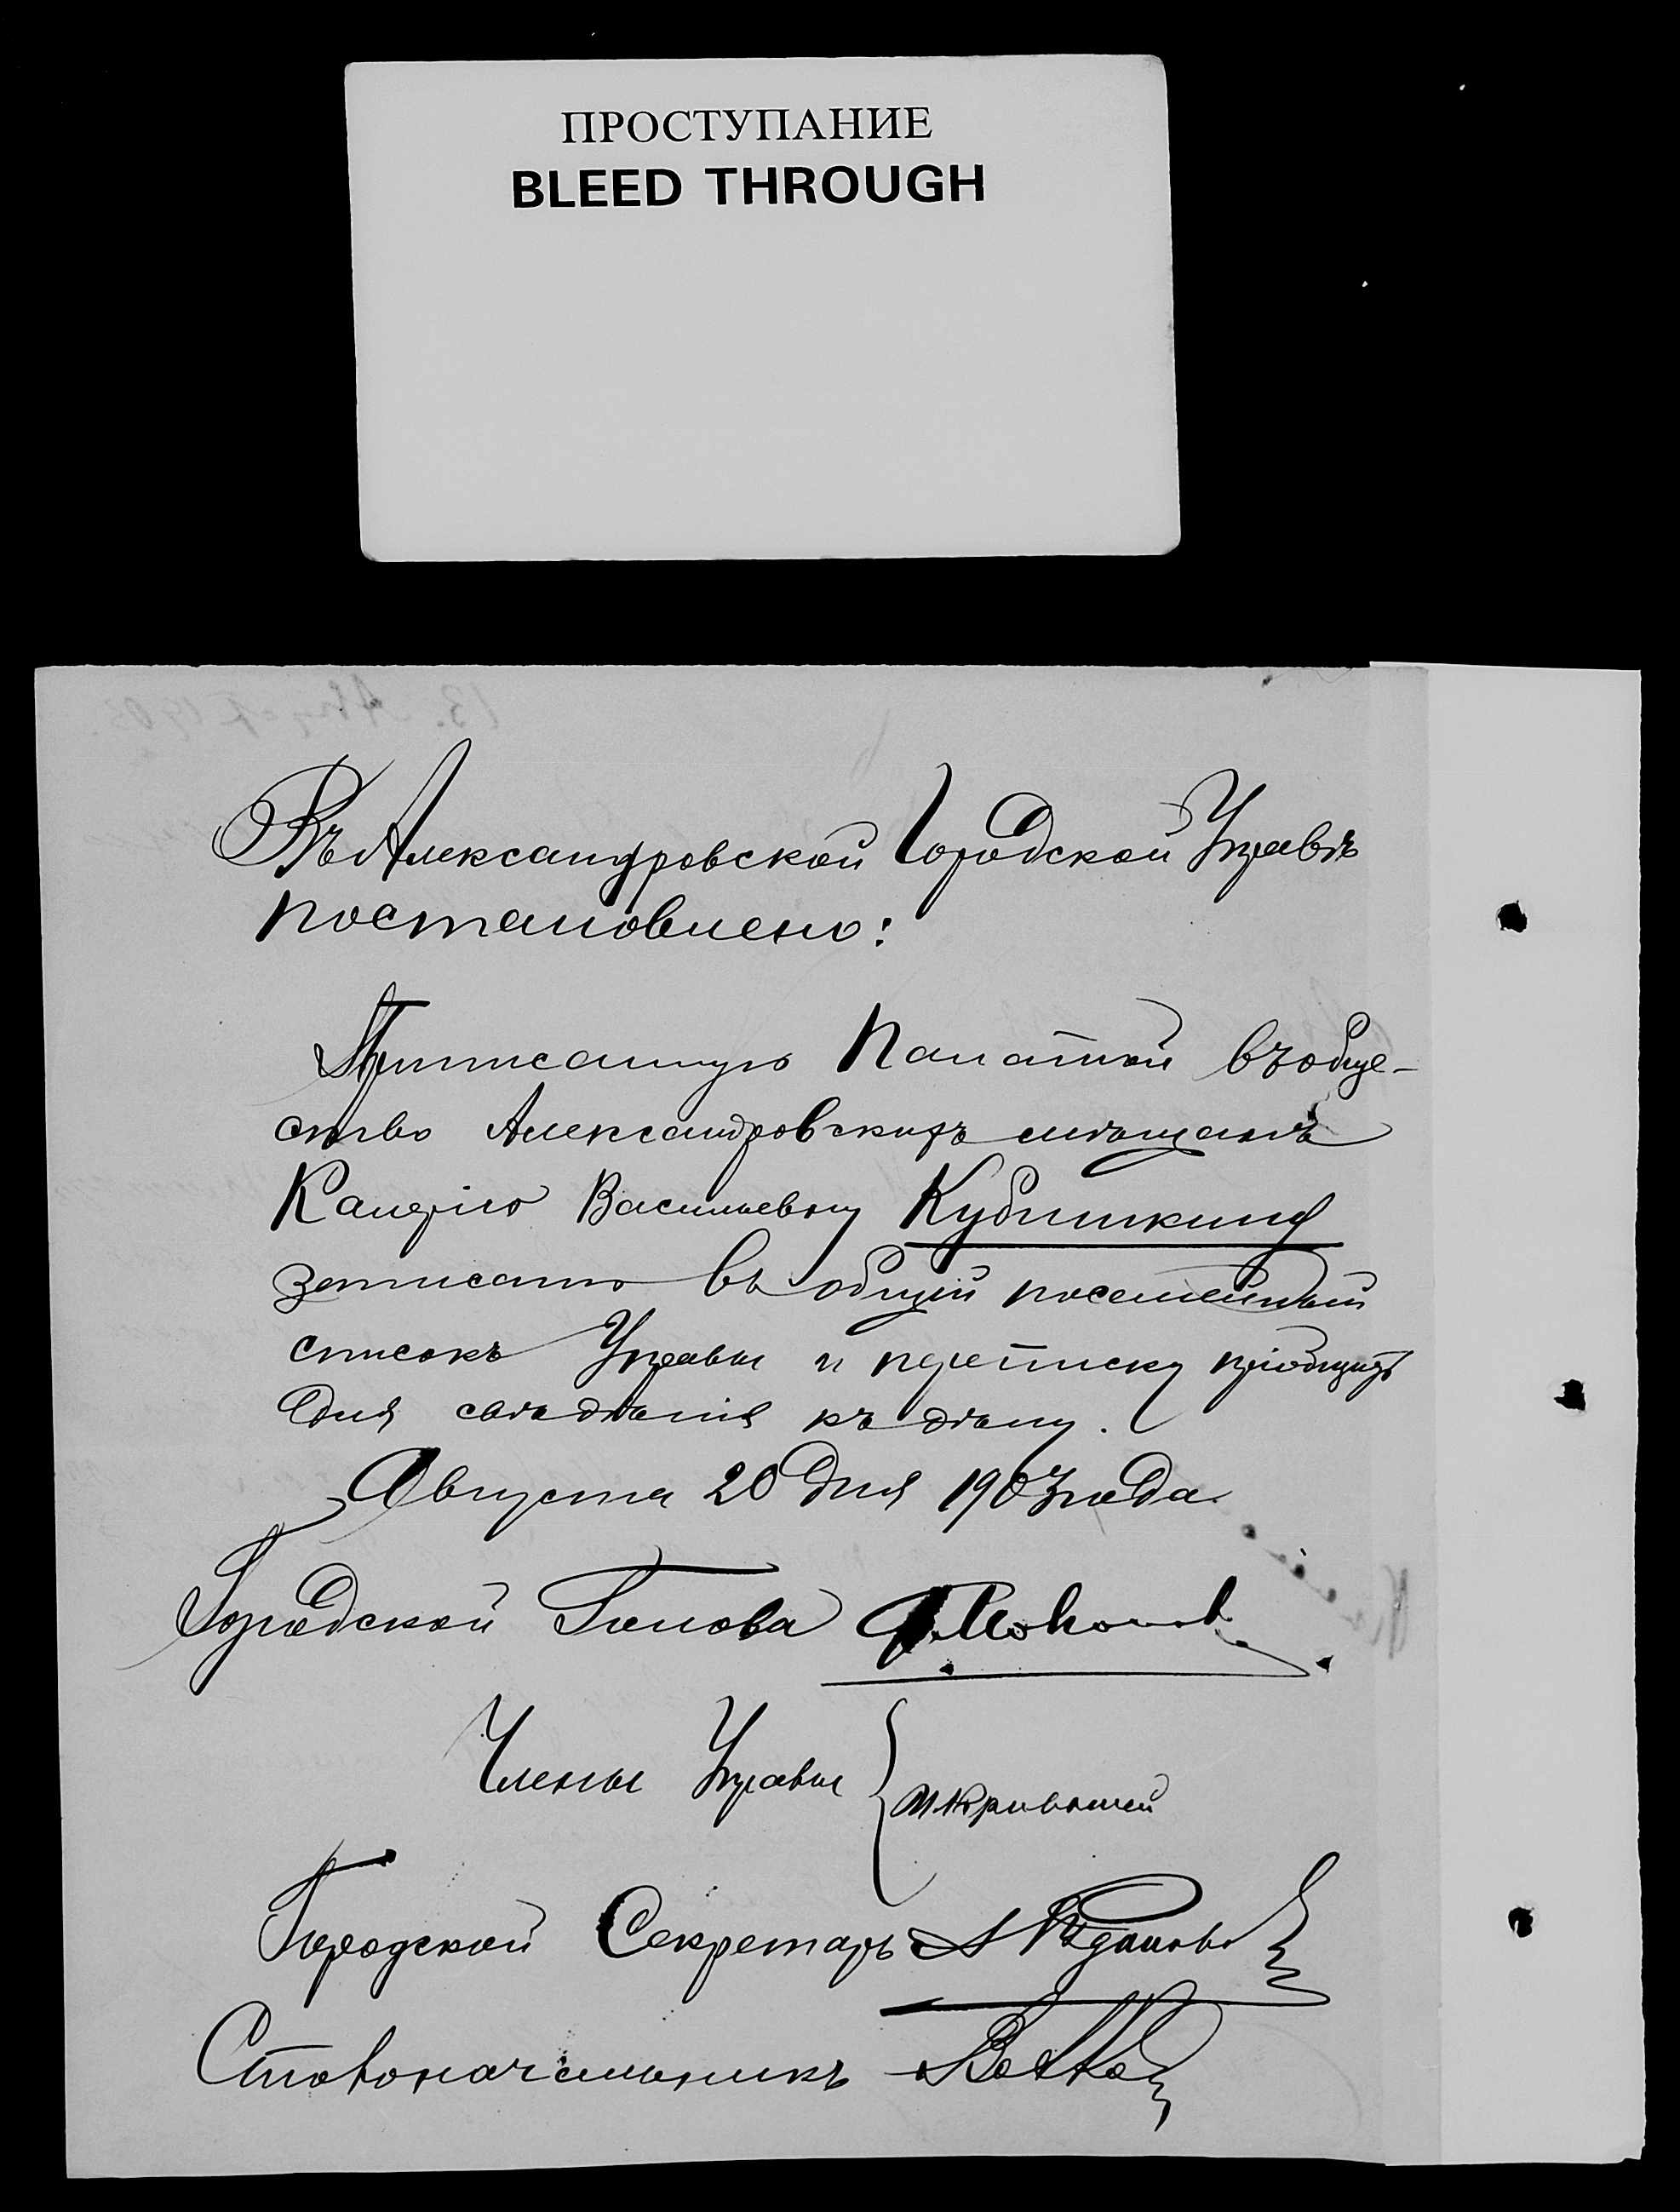 ПРОСТУПАНИЕ
BLEED THROUGH
Въ Александровской Городской Управѣ
постановлено:
Приписанную Палатой въ обще-
ство Александровскихъ мѣщанъ
Калерію Васильевну Кубышкину
записать въ общій посемейный
списокъ Управы и переписку пріобщить
для свѣдѣнія къ дѣлу.
Августа 20 дня 1903 года
Городской Голова
Члены Управы
Городской Секретарь
Столоначальникъ